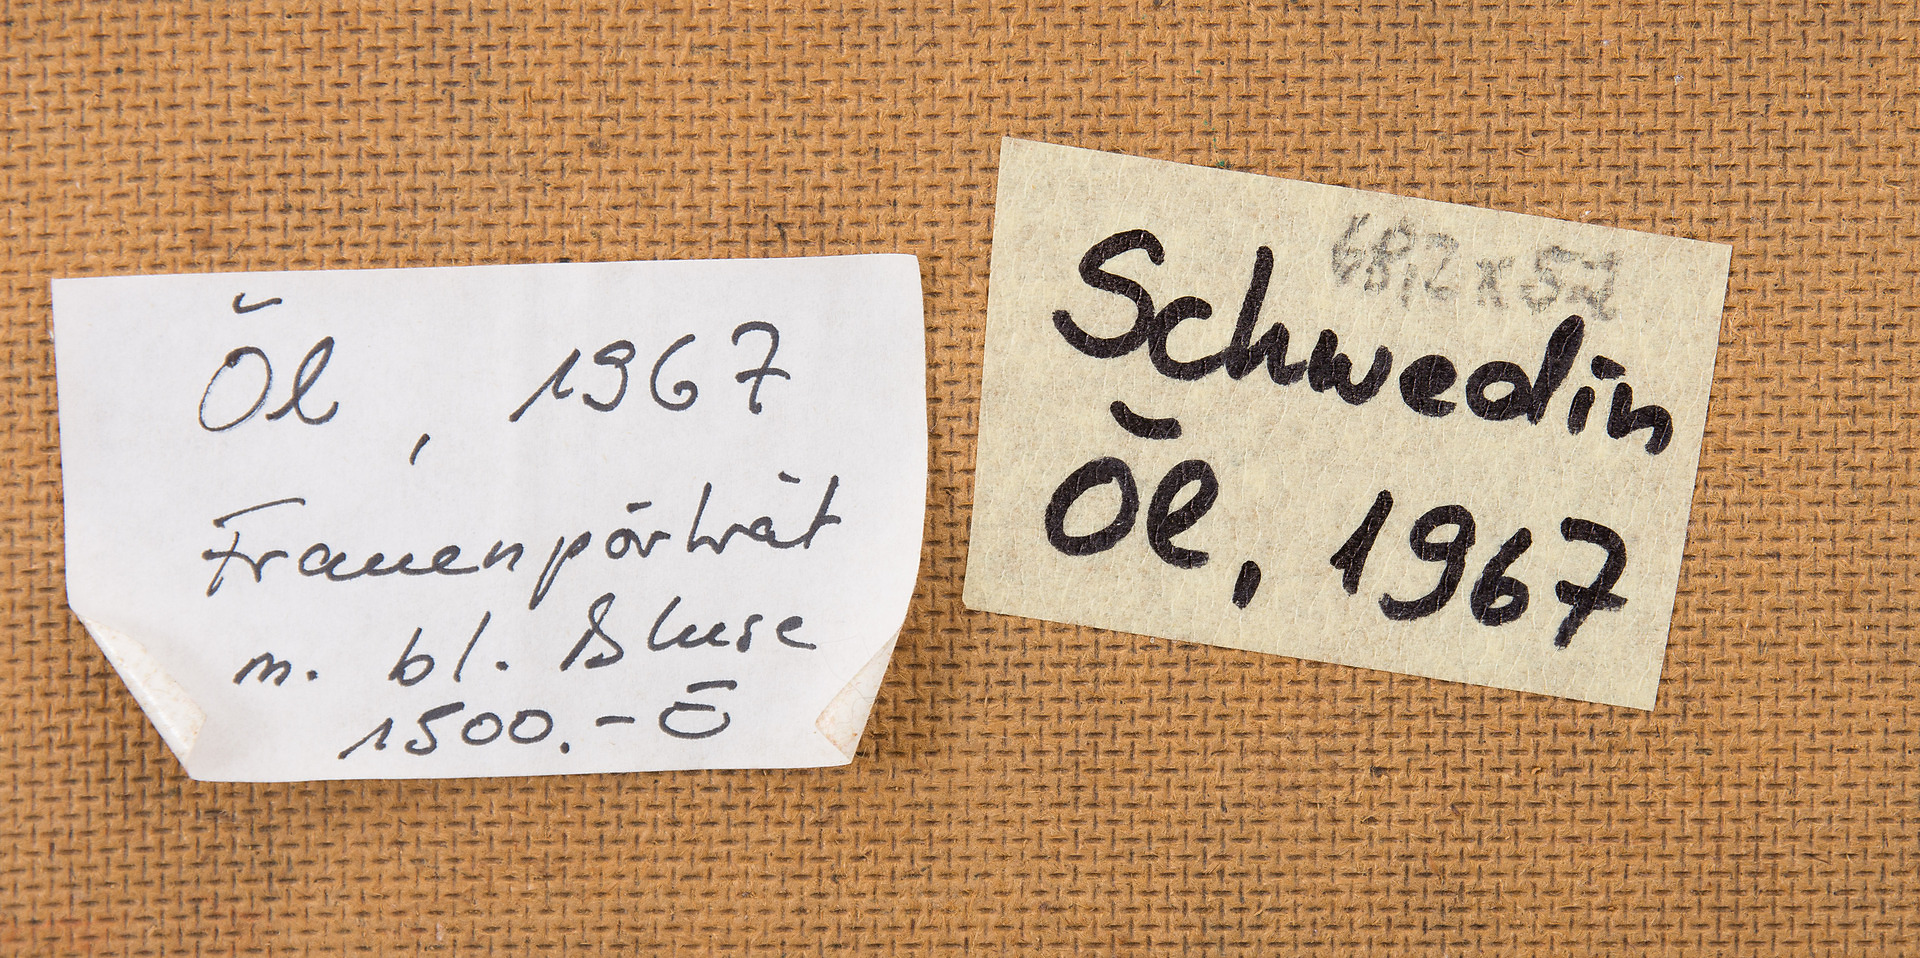 Öl, 1967
Frauenpörträt
m. bl. Bluse
1500.- €
68,2 x 52
Schwedin
Öl, 1967